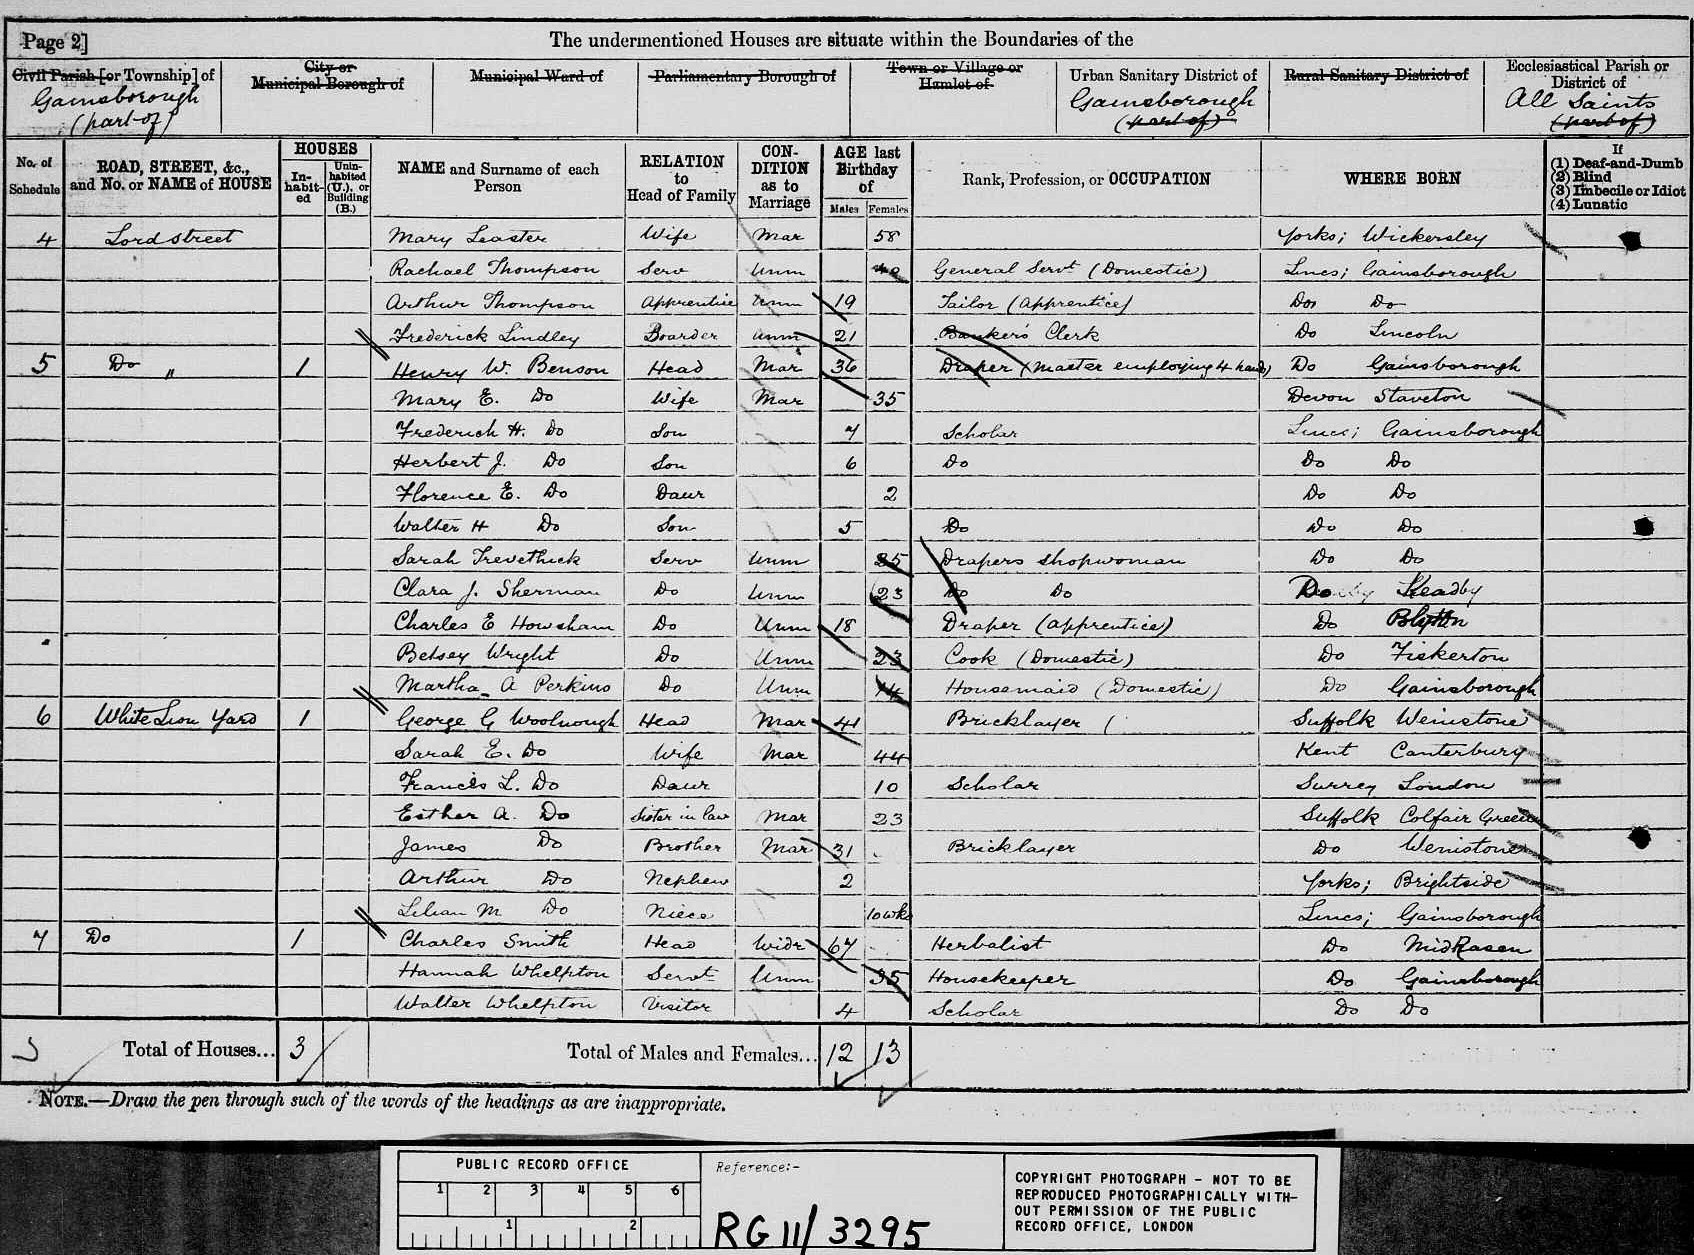 Page 2]
The undermentioned Houses are situate within the Boundaries of the
Civil Parish [or Township] of
Gainsborough
(part of)
City or
Municipal Borough of
Municipal Ward of
Parliamentary Borough of
Town or Village or
Hamlet of
Urban Sanitary District of
Gainsborough
(part of)
Rural Sanitary District of
Ecclesiastical Parish or
District of
All Saints
(part of)
No. of Schedule
ROAD, STREET, &c., and No. or NAME of HOUSE
HOUSES
In-habit-ed
Unin-habited (U.), or Building (B.)
NAME and Surname of each Person
RELATION to Head of Family
CON-DITION as to Marriage
AGE last Birthday of
Males
Females
Rank, Profession, or OCCUPATION
WHERE BORN
If
(1) Deaf-and-Dumb
(2) Blind
(3) Imbecile or Idiot
(4) Lunatic
4 Lord street Mary Leaster Wife Mar 58 Yorks; Wickersley
Rachael Thompson Serv Unm 40 General Servt (Domestic) Lincs; Gainsborough
Arthur Thompson Apprentice Unm 19 Tailor (Apprentice) Do Do
Frederick Lindley Boarder Unm 21 Banker's Clerk Do Lincoln
5 Do " 1 Henry W. Benson Head Mar 36 Draper (Master employing 4 hands) Do Gainsborough
Mary E. Do Wife Mar 35 Devon Staverton
Frederick H. Do Son 7 Scholar Lincs; Gainsborough
Herbert J. Do Son 6 Do Do Do
Florence E. Do Daur 2 Do Do
Walter H Do Son 5 Do Do Do
Sarah Trevethick Serv Unm 35 Drapers Shopwoman Do Do
Clara J. Sherman Do Unm 23 Do Do Do Keadby
Charles E Howsham Do Unm 18 Draper (Apprentice) Do Blyton
Betsey Wright Do Unm 23 Cook (Domestic) Do Fiskerton
Martha A Perkins Do Unm 14 Housemaid (Domestic) Do Gainsborough
6 White Lion Yard 1 George G Woolnough Head Mar 41 Bricklayer ( Suffolk Wenistone
Sarah E. Do Wife Mar 44 Kent Canterbury
Francis L. Do Daur 10 Scholar Surrey London
Esther A. Do Sister in law Mar 23 Suffolk Colfair Green
James Do Brother Mar 31 Bricklayer Do Wenistone
Arthur Do Nephew 2 Yorks; Brightside
Lilian M. Do Niece 10 wks Lincs; Gainsborough
7 Do 1 Charles Smith Head Widr 67 Herbalist Do Mid Rasen
Hannah Whelpton Servt Unm 35 Housekeeper Do Gainsborough
Walter Whelpton Visitor 4 Scholar Do Do
Total of Houses... 3 Total of Males and Females... 12 13
NOTE.—Draw the pen through such of the words of the headings as are inappropriate.
PUBLIC RECORD OFFICE
1 2 3 4 5 6
1 2
Reference:-
RG 11/3295
COPYRIGHT PHOTOGRAPH - NOT TO BE
REPRODUCED PHOTOGRAPHICALLY WITH-
OUT PERMISSION OF THE PUBLIC
RECORD OFFICE, LONDON